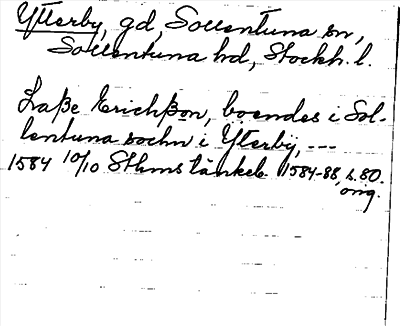 Ytterby, gd, Sollentuna sn,
Sollentuna hd, Stockh. l.
Laße Erichßon, boendes i Sol-
lentuna sochn i Ytterbÿ, ---
1584 10/10 Sthms tänkeb. 1584-88, s. 80.
orig.